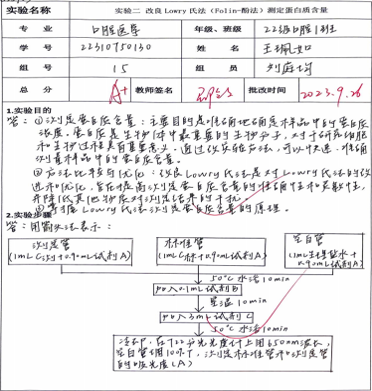 实验名称 实验二 改良Lowry氏法（Folin-酚法）测定蛋白质含量
专业 口腔医学 年级、班级 22级口腔1班
学号 22310750130 姓名
组号 15 组员
总分 A+ 教师签名 批改时间 2023.9.26
1.实验目的
答：①测定蛋白质含量：主要目的是准确地确定样品中的蛋白质
浓度。蛋白质是生物体中最重要的生物分子，对于研究细胞
和生物过程具有重要意义。通过该实验方法，可以快速、准确
测量样品中的蛋白质含量。
②方法比较与优化：改良Lowry氏法是对Lowry氏法的改
进和优化，旨在提高测定蛋白质含量的准确性和灵敏性，
并降低其他物质对测定结果的干扰
③掌握Lowry氏法测定蛋白质含量的原理。
2.实验步骤
答：用箭头法表示：
测定管 标准管 空白管
(1mL 试剂A) (1mL 0.90mL试剂A) (1mL生理盐水+
0.90mL试剂A)
50℃水浴10min
加入0.1mL试剂B
室温10min
加入3mL试剂C
50℃水浴10min
冷却，在722分光光度计上用650nm波长，
空白管调100%T，测定标准管和测定管
的吸光度(A)